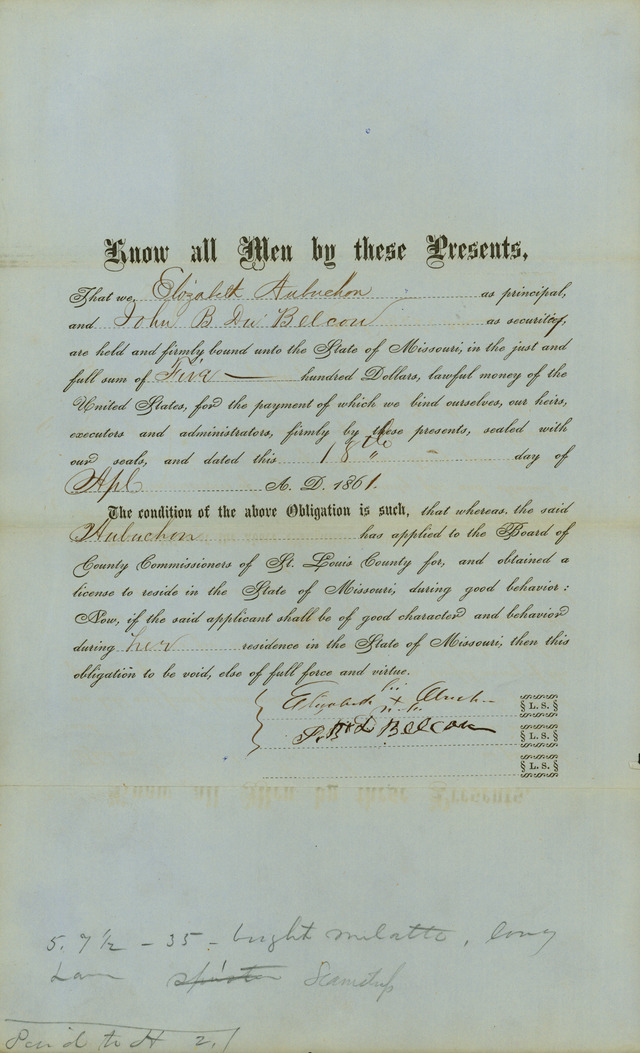 Know all Men by these Presents,
That we, Elizabeth Aubuchon as principal,
and John B Du Belcou as security,
are held and firmly bound unto the State of Missouri, in the just and
full sum of Five hundred Dollars, lawful money of the
United States, for the payment of which we bind ourselves, our heirs,
executors and administrators, firmly by these presents, sealed with
our seals, and dated this 18th day of
Apl A. D. 1861.
The condition of the above Obligation is such, that whereas, the said
Aubuchon has applied to the Board of
County Commissioners of St. Louis County for, and obtained a
license to reside in the State of Missouri, during good behavior:
Now, if the said applicant shall be of good character and behavior
during her residence in the State of Missouri, then this
obligation to be void, else of full force and virtue.
Elizabeth X L. S.
Belcou L. S.
L. S.
5. 7 1/2 - 35 - bright mulatto, long